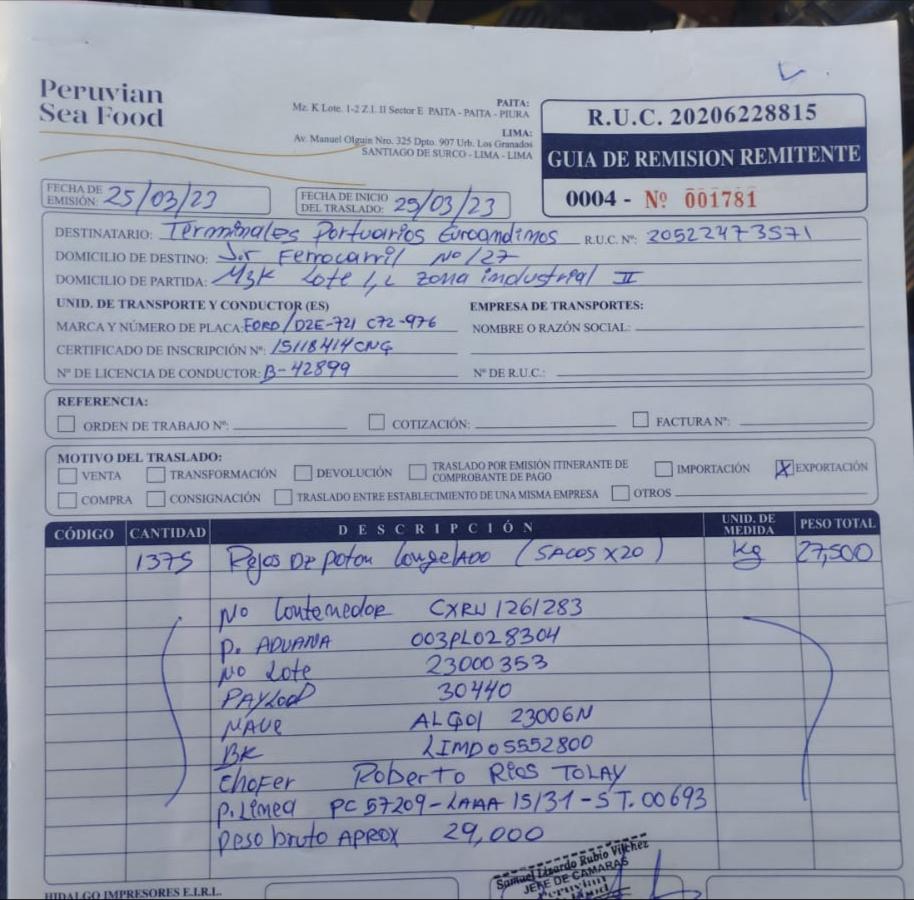 Peruvian
Sea Food
PAITA:
Mz. K Lote. 1-2 Z.I. II Sector E PAITA - PAITA - PIURA
LIMA:
Av. Manuel Olguin Nro. 325 Dpto. 907 Urb. Los Granados
SANTIAGO DE SURCO - LIMA - LIMA
R.U.C. 20206228815
GUIA DE REMISION REMITENTE
0004 - Nº 001781
FECHA DE EMISIÓN: 25/03/23
FECHA DE INICIO DEL TRASLADO: 25/03/23
DESTINATARIO: Terminales Portuarios Euroandinos R.U.C. Nº: 20522473571
DOMICILIO DE DESTINO: J.r Ferrocarril No 127
DOMICILIO DE PARTIDA: MzK Lote 1,2 Zona industrial II
UNID. DE TRANSPORTE Y CONDUCTOR (ES)
EMPRESA DE TRANSPORTES:
MARCA Y NÚMERO DE PLACA: FORD/D2E-721 C72-976
NOMBRE O RAZÓN SOCIAL:
CERTIFICADO DE INSCRIPCIÓN Nº: 15118414CNG
Nº DE LICENCIA DE CONDUCTOR: B-42899
Nº DE R.U.C.:
REFERENCIA:
ORDEN DE TRABAJO Nº: COTIZACIÓN: FACTURA Nº:
MOTIVO DEL TRASLADO:
VENTA TRANSFORMACIÓN DEVOLUCIÓN TRASLADO POR EMISIÓN ITINERANTE DE COMPROBANTE DE PAGO IMPORTACIÓN X EXPORTACIÓN
COMPRA CONSIGNACIÓN TRASLADO ENTRE ESTABLECIMIENTO DE UNA MISMA EMPRESA OTROS
CÓDIGO CANTIDAD DESCRIPCIÓN UNID. DE MEDIDA PESO TOTAL
1375 Rejos De poton Congelado (SACOS X20) kg 27,500
No Contenedor CXRU 1261283
P. ADUANA 003PL028304
No Lote 23000353
PAYLOAD 30440
NAVE ALGOL 23006N
BK LIMD05552800
Chofer Roberto Rios TOLAY
P. Linea PC 57209-LAAA 15/31-S T. 00693
Peso bruto APROX 29,000
Samuel Lizardo Rubio Vilchez
JEFE DE CAMARAS
Peruvian
HIDALGO IMPRESORES E.I.R.L.